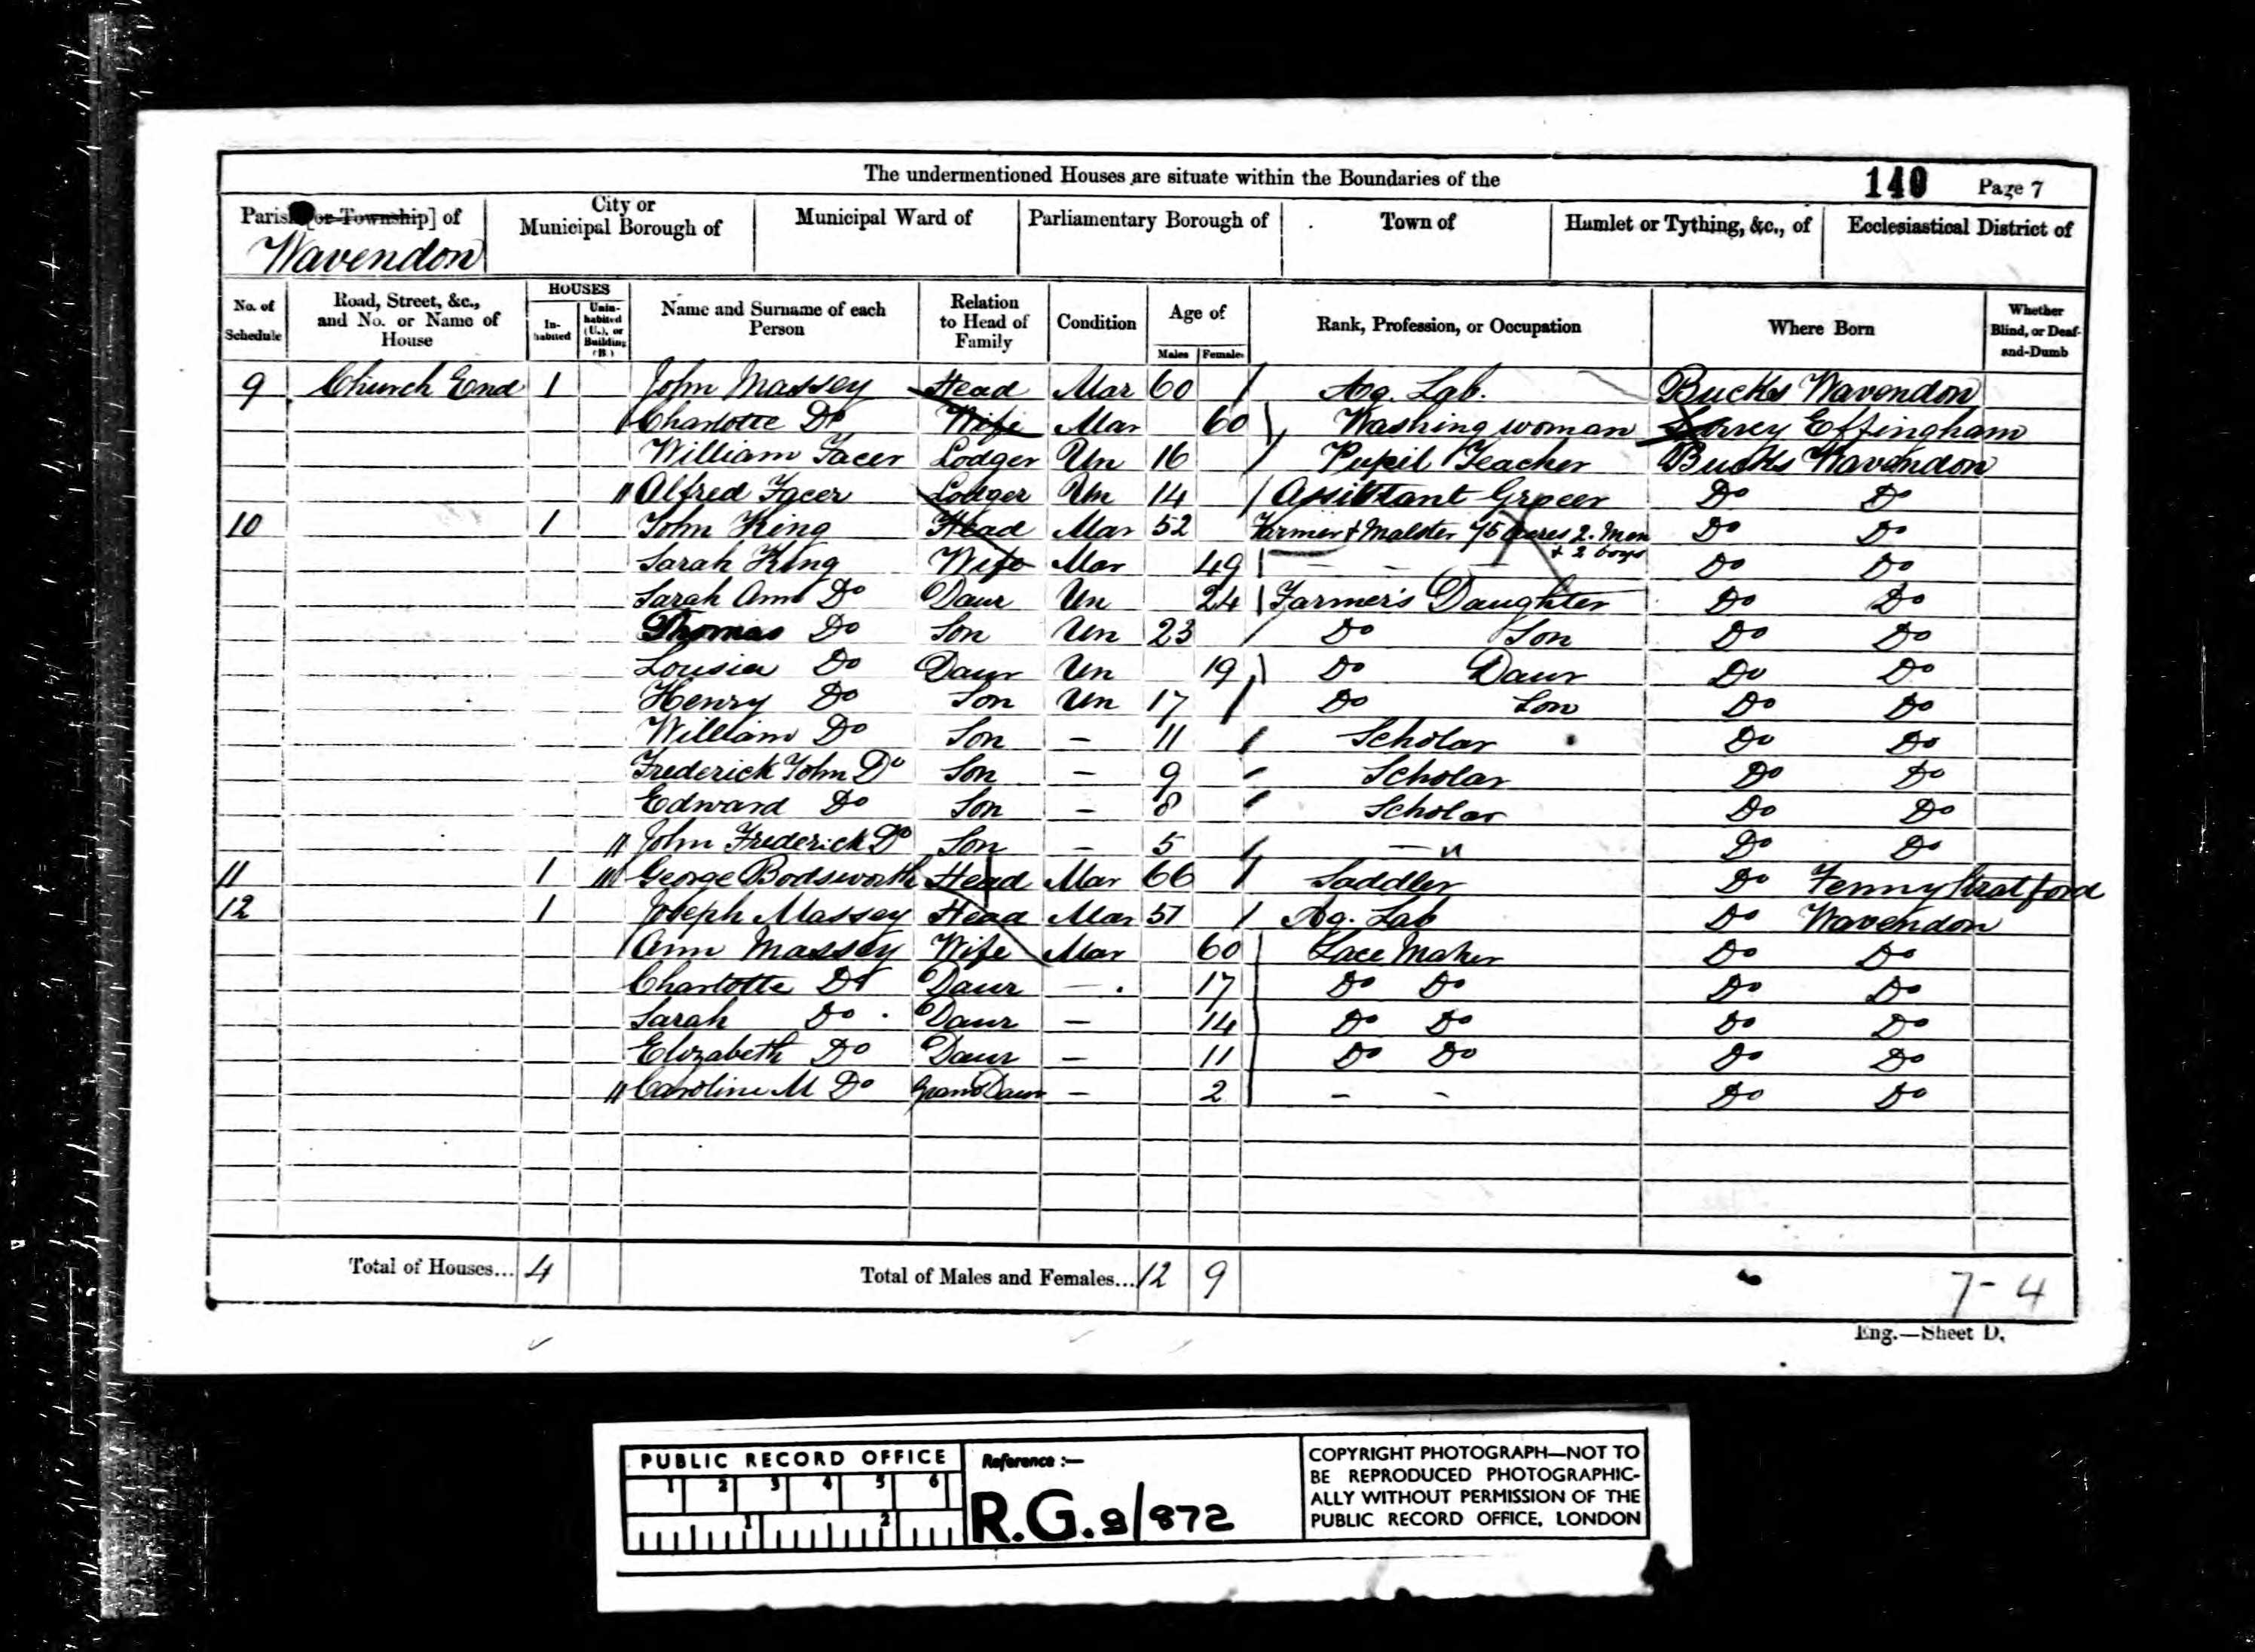 The undermentioned Houses are situate within the Boundaries of the 140 Page 7
Parish [or Township] of City or Municipal Borough of Municipal Ward of Parliamentary Borough of Town of Hamlet or Tything, &c., of Ecclesiastical District of
Wavendon
No. of Schedule Road, Street, &c., and No. or Name of House HOUSES In-habited Unin-habited (U.), or Building (B.) Name and Surname of each Person Relation to Head of Family Condition Age of Males Females Rank, Profession, or Occupation Where Born Whether Blind, or Deaf-and-Dumb
9 Church End 1 John Massey Head Mar 60 Ag. Lab. Bucks Wavendon
Charlotte Do Wife Mar 60 Washing woman Surrey Effingham
William Facer Lodger Un 16 Pupil Teacher Bucks Wavendon
Alfred Facer Lodger Un 14 Assistant Grocer Do Do
10 1 John King Head Mar 52 Farmer & Malster 75 acres 2. Men Do Do
& 2 boys
Sarah King Wife Mar 49 – – Do Do
Sarah Ann Do Daur Un 24 Farmer's Daughter Do Do
Thomas Do Son Un 23 Do Son Do Do
Lousia Do Daur Un 19 Do Daur Do Do
Henry Do Son Un 17 Do Son Do Do
William Do Son – 11 Scholar Do Do
Frederick John Do Son – 9 Scholar Do Do
Edward Do Son – 8 Scholar Do Do
John Frederick Do Son – 5 – Do Do
11 1 George Bodsworth Head Mar 66 Saddler Do Fenny Stratford
12 1 Joseph Massey Head Mar 57 Ag. Lab Do Wavendon
Ann Massey Wife Mar 60 Lace Maker Do Do
Charlotte Do Daur – 17 Do Do Do Do
Sarah Do Daur – 14 Do Do Do Do
Elizabeth Do Daur – 11 Do Do Do Do
Caroline M Do Grand Daur – 2 – – Do Do
Total of Houses... 4 Total of Males and Females... 12 9
7-4
Eng.—Sheet D.
PUBLIC RECORD OFFICE
1 2 3 4 5 6
1 2
Reference :—
R.G. 9/872
COPYRIGHT PHOTOGRAPH—NOT TO
BE REPRODUCED PHOTOGRAPHIC-
ALLY WITHOUT PERMISSION OF THE
PUBLIC RECORD OFFICE, LONDON